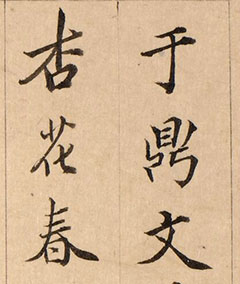 于鼎文
杏花春